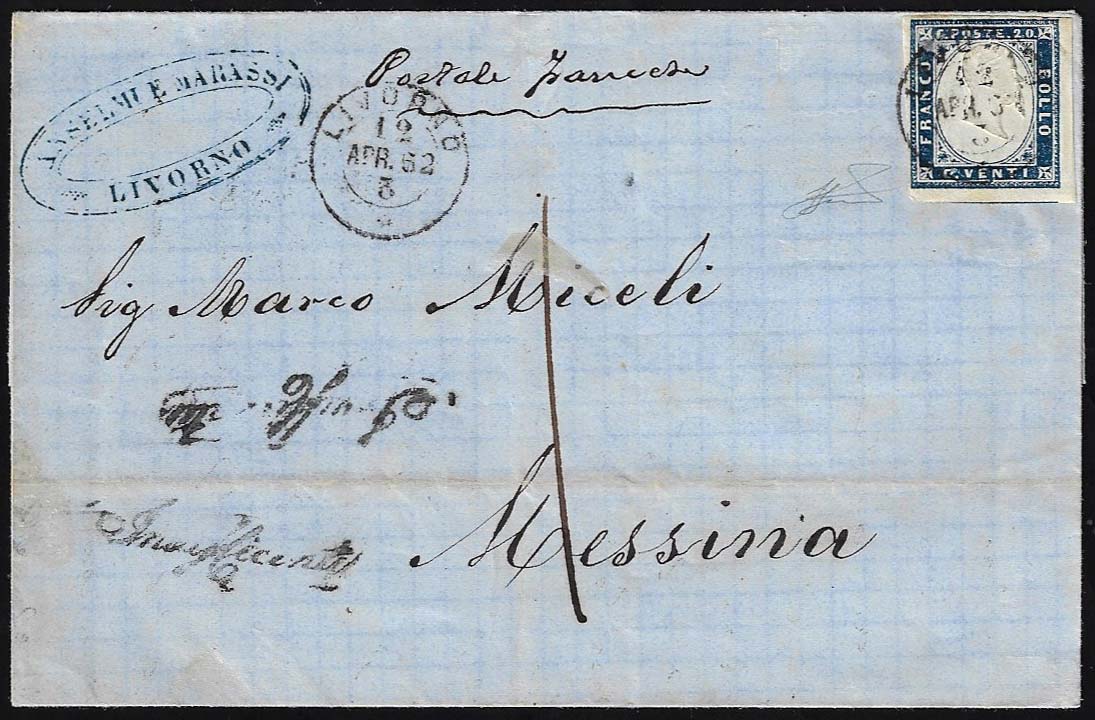 ANSELMI E MARASSI
LIVORNO
Postale francese
LIVORNO
12
APR. 62
3
C. POSTE 20
FRANCO
BOLLO
C. VENTI
12
APR.
Sig Marco Miceli
1
Messina